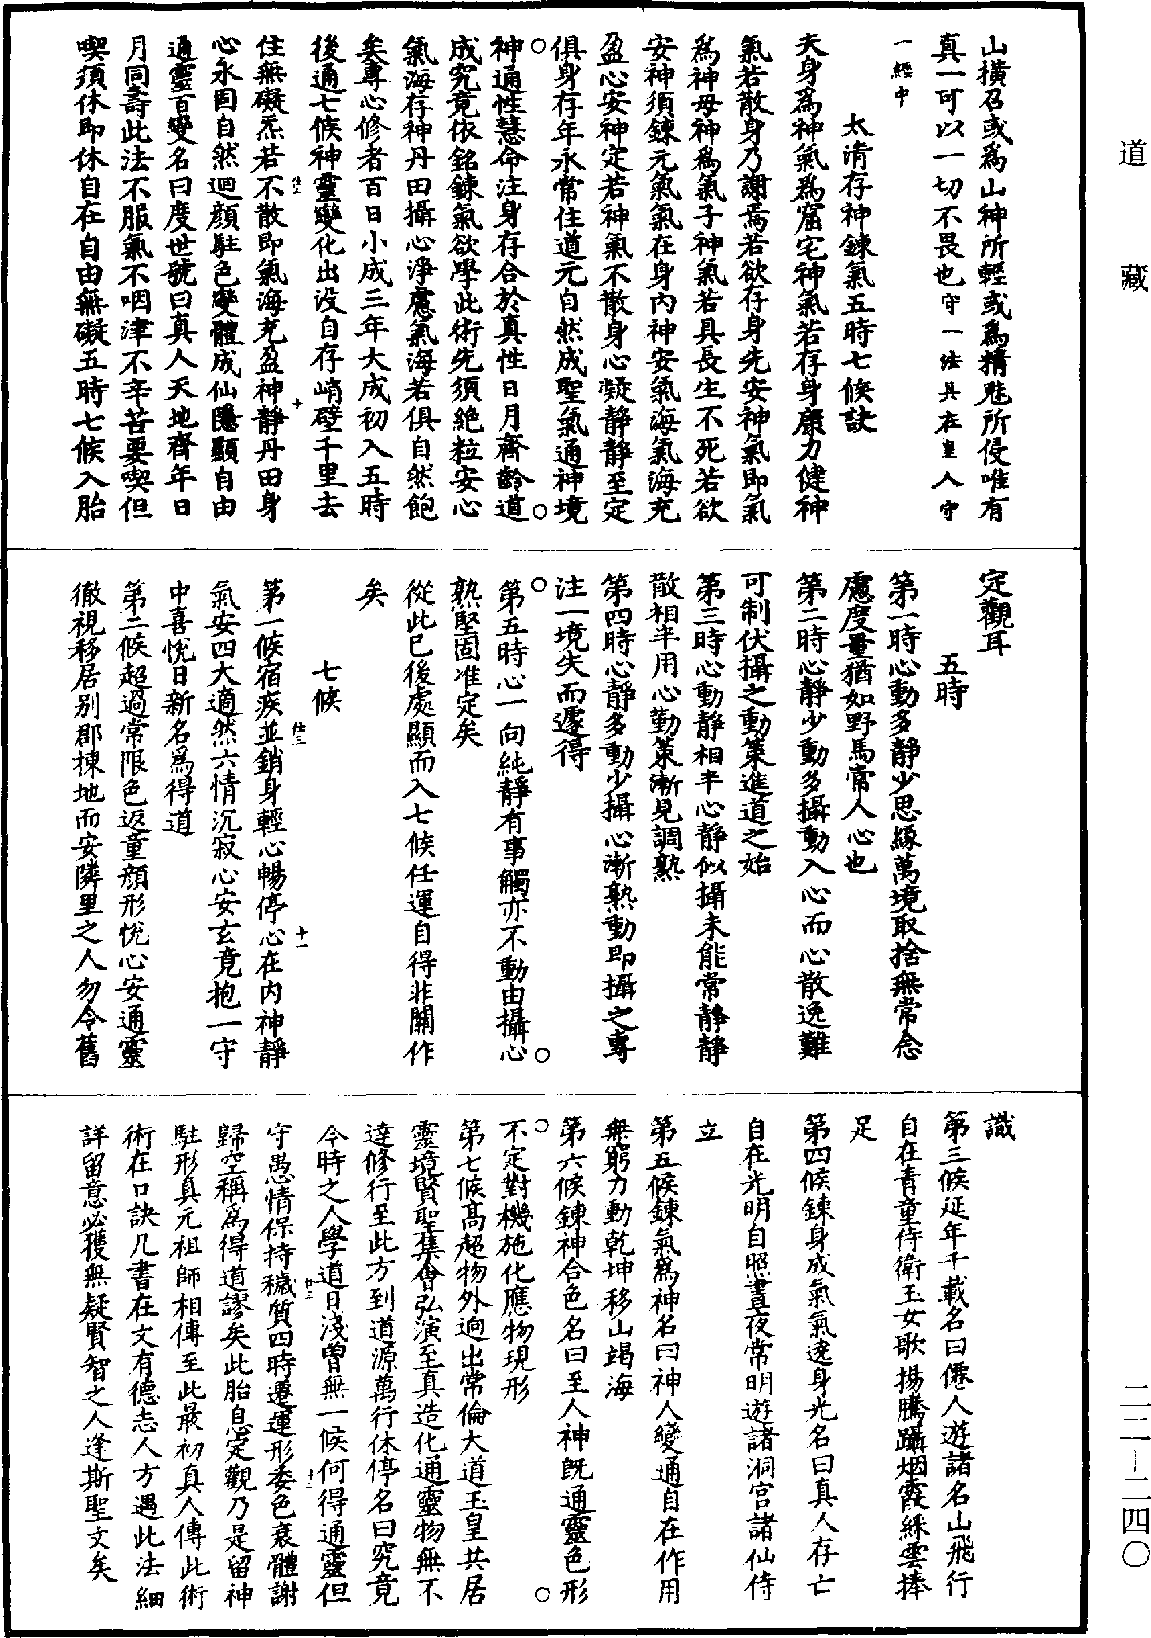 道藏
山橫召或爲山神所輕或爲精魅所侵唯有
真一可以一切不畏也守一法具在皇人守
一經中
太清存神鍊氣五時七候訣
夫身爲神氣爲窟宅神氣若存身康力健神
氣若散身乃謝焉若欲存身先安神氣即氣
爲神母神爲氣子神氣若具長生不死若欲
安神須鍊元氣氣在身內神安氣海氣海充
盈心安神定若神氣不散身心凝靜靜至定
俱身存年永常住道元自然成聖氣通神境
神通性慧命注身存合於真性日月齊齡道
成究竟依銘鍊氣欲學此術先須絶粒安心
氣海存神丹田攝心淨慮氣海若俱自然飽
矣專心修者百日小成三年大成初入五時
後通七候神靈變化出没自存峭壁千里去
住無礙炁若不散即氣海充盈神靜丹田身
心永固自然迴顔駐色變體成仙隱顯自由
通靈百變名曰度世號曰真人天地齊年日
月同壽此法不服氣不咽津不辛苦要喫但
喫須休即休自在自由無礙五時七候入胎
定觀耳
五時
第一時心動多靜少思緣萬境取捨無常念
慮度量猶如野馬常人心也
第二時心靜少動多攝動入心而心散逸難
可制伏攝之動策進道之始
第三時心動靜相半心靜似攝未能常靜靜
散相半用心勤策漸見調熟
第四時心靜多動少攝心漸熟動即攝之專
注一境失而遽得
第五時心一向純靜有事觸亦不動由攝心
熟堅固准定矣
從此已後處顯而入七候任運自得非關作
矣
七候
第一候宿疾並銷身輕心暢停心在内神靜
氣安四大適然六情沉寂心安玄竟抱一守
中喜悅日新名爲得道
第二候超過常限色返童顔形悅心安通靈
徹視移居别郡揀地而安隣里之人勿令舊
識
第三候延年千載名曰僊人遊諸名山飛行
自在青童侍衛玉女歌揚騰躡烟霞綵雲捧
足
第四候鍊身成氣氣遶身光名曰真人存亡
自在光明自照晝夜常明遊諸洞宫諸仙侍
立
第五候鍊氣爲神名曰神人變通自在作用
無窮力動乾坤移山竭海
第六候鍊神合色名曰至人神既通靈色形
不定對機施化應物現形
第七候髙超物外逈出常倫大道玉皇共居
靈境賢聖集會弘演至真造化通靈物無不
達修行至此方到道源萬行休停名曰究竟
今時之人學道日淺曽無一候何得通靈但
守愚情保持穢質四時遷運形委色衰體謝
歸空稱爲得道謬矣此胎息定觀乃是留神
駐形真元祖師相傳至此最初真人傳此術
術在口訣凡書在文有德志人方遇此法細
詳留意必獲無疑賢智之人逢斯聖文矣
二二－二四〇